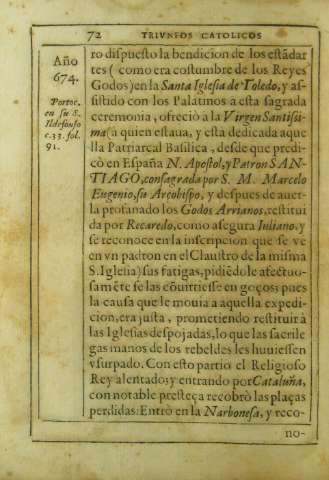 72 TRIUNFOS CATOLICOS
Año
674.
Portoc.
en su S.
Ildefonso
c.33. fol.
91.
ro dispuesto la bendicion de los estādar
tes ( como era costumbre de los Reyes
Godos) en la Santa Iglesia de Toledo, y as-
sistido con los Palatinos a esta sagrada
ceremonia, ofreciò a la Virgen Santissi-
ma (a quien estaua, y esta dedicada aque
lla Patriarcal Basilica, desde que predi-
cò en España N. Apostol, y Patron SAN-
TIAGO, consagrada por S. M. Marcelo
Eugenio, su Arçobispo, y despues de auer-
la profanado los Godos Arrianos, restitui
da por Recaredo, como asegura Iuliano, y
se reconoce en la inscripcion que se ve
en vn padron en el Claustro de la misma
S. Iglesia) sus fatigas, pidiēdole afectuo-
samēte se las cōuirtiesse en goços; pues
la causa que le mouia a aquella expedi-
cion, era justa, prometiendo restituir à
las Iglesias despojadas, lo que las sacrile
gas manos de los rebeldes les huuiessen
vsurpado. Con esto partio el Religioso
Rey alentado; y entrando por Cataluña,
con notable presteça recobrò las plaças
perdidas: Entrò en la Narbonesa, y reco-
no-